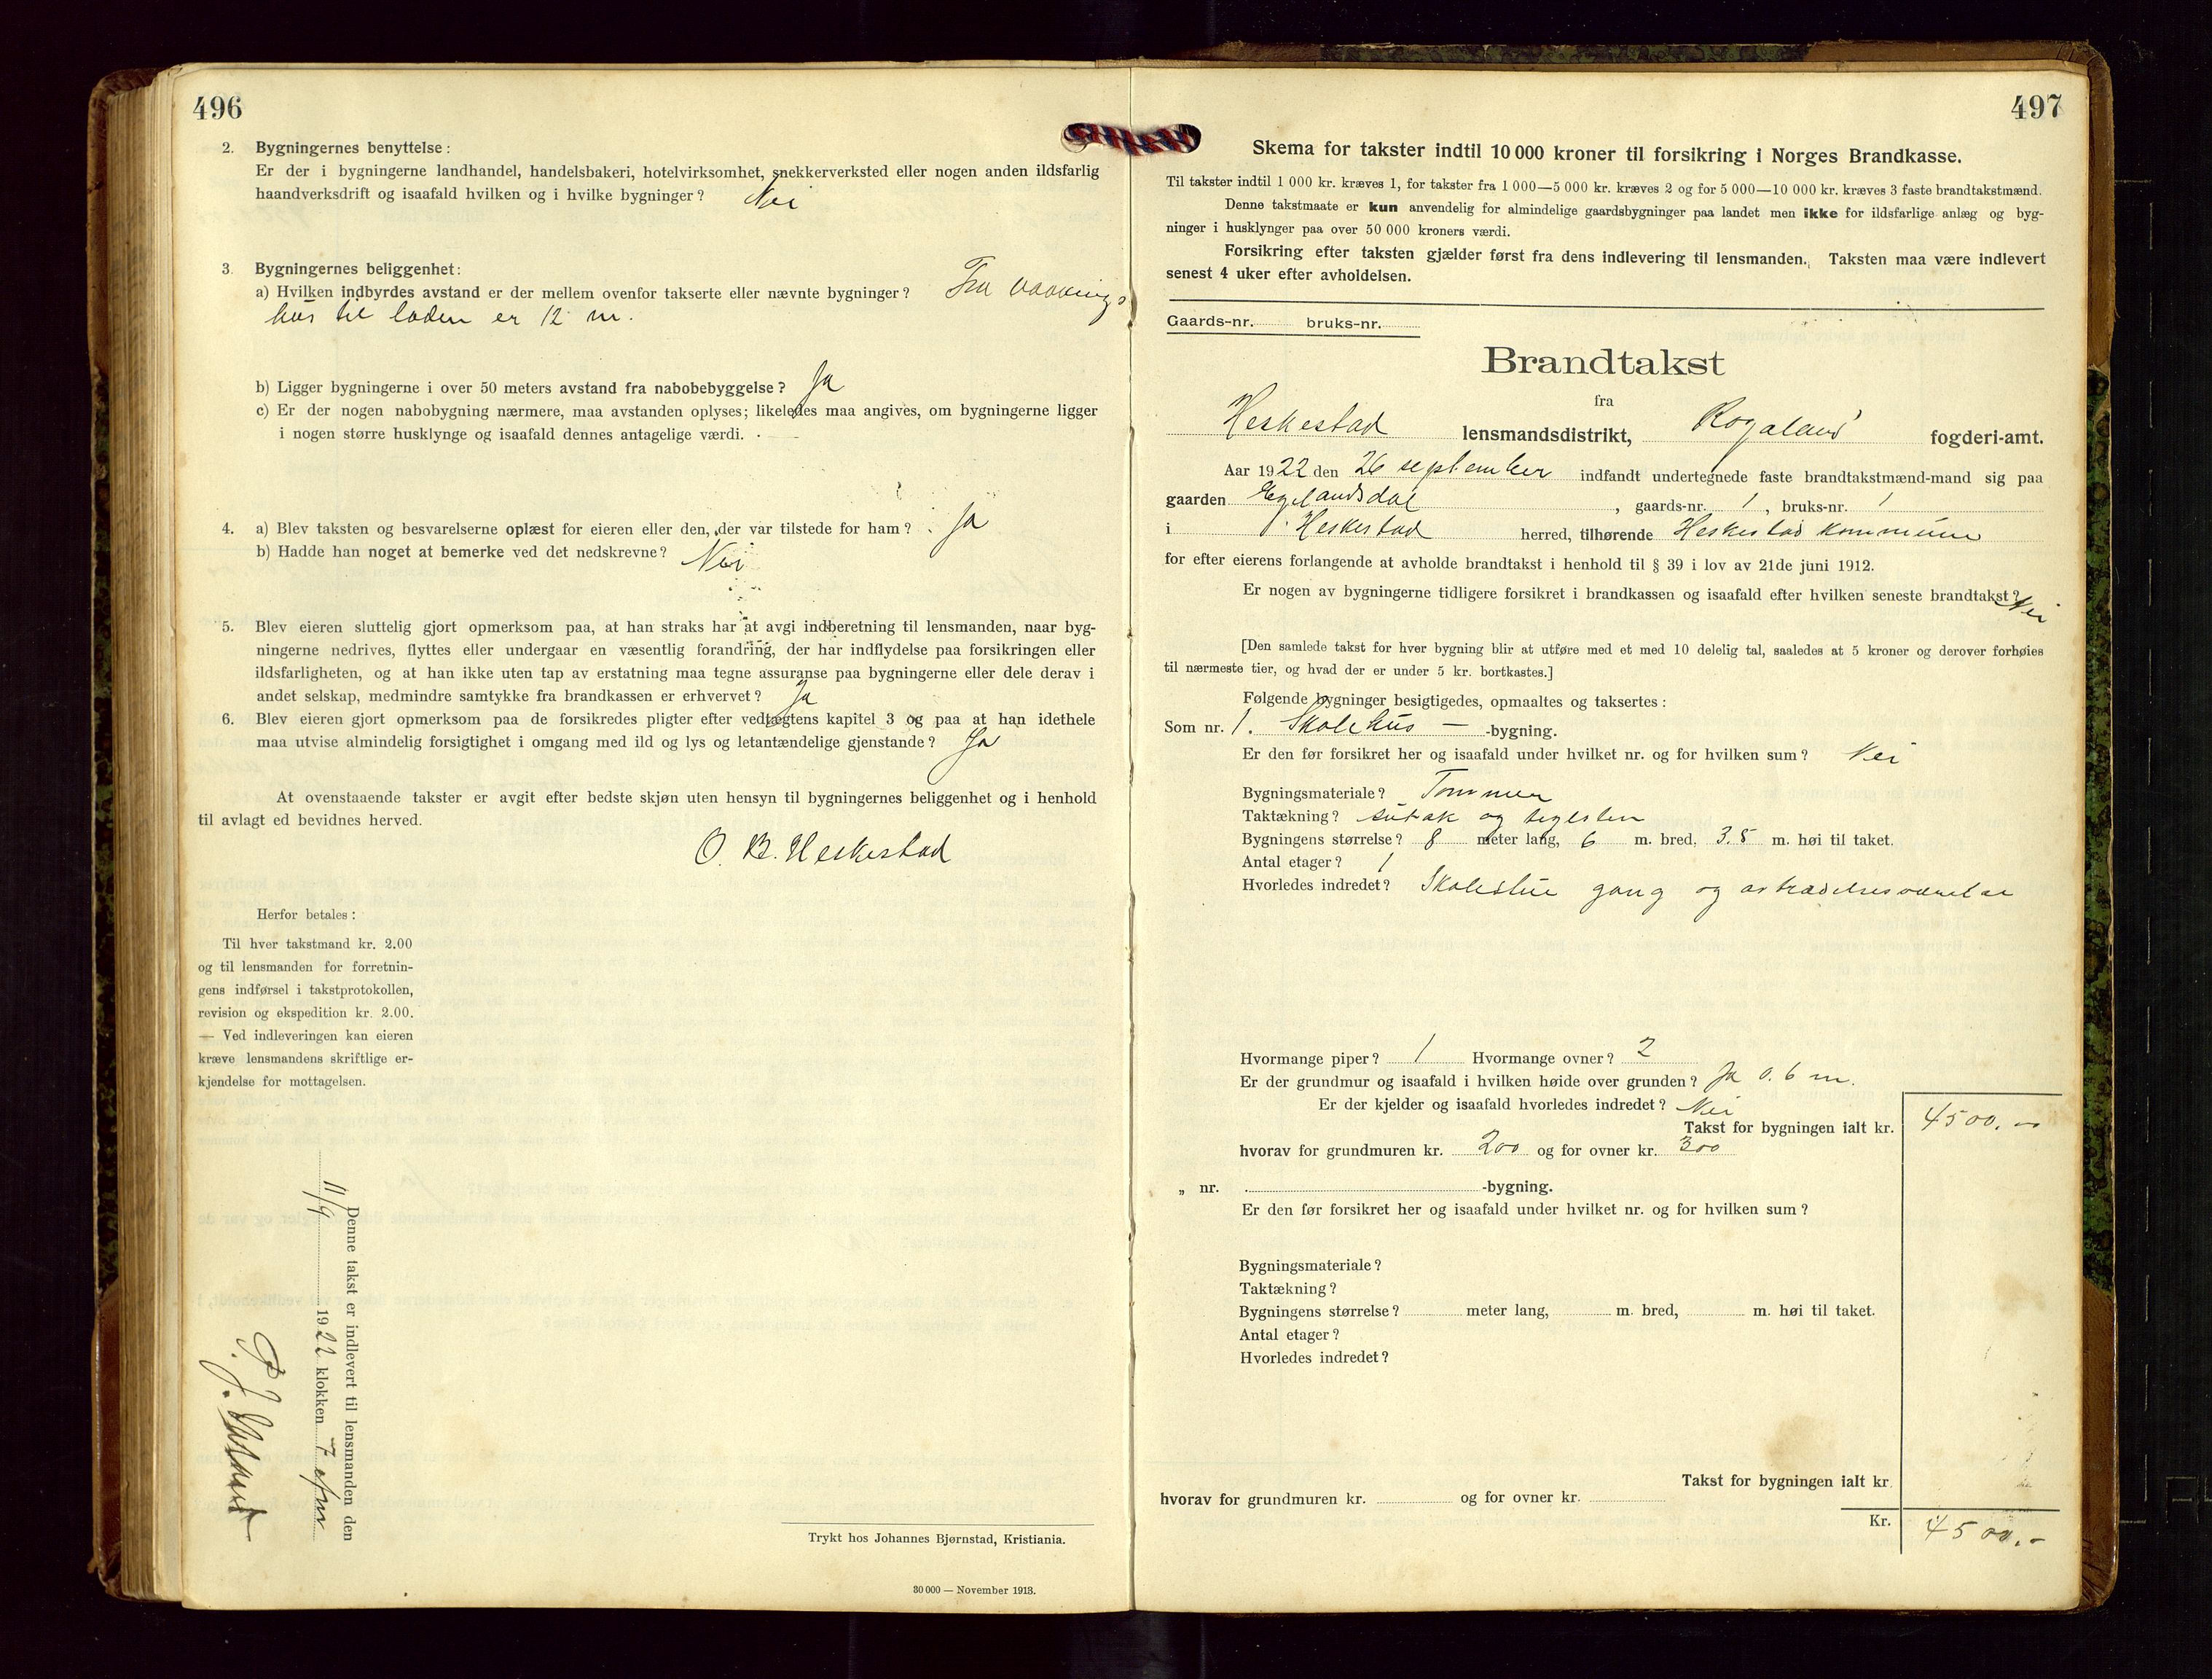 496
2. Bygningernes benyttelse:
Er der i bygningerne landhandel, handelsbakeri, hotelvirksomhet, snekkerverksted eller nogen anden ildsfarlig
haandverksdrift og isaafald hvilken og i hvilke bygninger? Nei
3. Bygningernes beliggenhet:
a) Hvilken indbyrdes avstand er der mellem ovenfor takserte eller nævnte bygninger? Fra vaanings
hus til laden er 12 m.
b) Ligger bygningerne i over 50 meters avstand fra nabobebyggelse? Ja
c) Er der nogen nabobygning nærmere, maa avstanden oplyses; likeledes maa angives, om bygningerne ligger
i nogen større husklynge og isaafald dennes antagelige værdi. —
4. a) Blev taksten og besvarelserne oplæst for eieren eller den, der var tilstede for ham? Ja
b) Hadde han noget at bemerke ved det nedskrevne? Nei
5. Blev eieren sluttelig gjort opmerksom paa, at han straks har at avgi indberetning til lensmanden, naar byg-
ningerne nedrives, flyttes eller undergaar en væsentlig forandring, der har indflydelse paa forsikringen eller
ildsfarligheten, og at han ikke uten tap av erstatning maa tegne assuranse paa bygningerne eller dele derav i
andet selskap, medmindre samtykke fra brandkassen er erhvervet? Ja
6. Blev eieren gjort opmerksom paa de forsikredes pligter efter vedtægtens kapitel 3 og paa at han idethele
maa utvise almindelig forsigtighet i omgang med ild og lys og letantændelige gjenstande? Ja
At ovenstaaende takster er avgit efter bedste skjøn uten hensyn til bygningernes beliggenhet og i henhold
til avlagt ed bevidnes herved.
O. B. Heskestad
Herfor betales:
Til hver takstmand kr. 2.00
og til lensmanden for forretnin-
gens indførsel i takstprotokollen,
revision og ekspedition kr. 2.00.
— Ved indleveringen kan eieren
kræve lensmandens skriftlige er-
kjendelse for mottagelsen.
Denne takst er indlevert til lensmanden den
11/9 1922 klokken 7 efm
P. J.
Trykt hos Johannes Bjørnstad, Kristiania.
30 000 — November 1913.
497
Skema for takster indtil 10 000 kroner til forsikring i Norges Brandkasse.
Til takster indtil 1 000 kr. kræves 1, for takster fra 1 000—5 000 kr. kræves 2 og for 5 000—10 000 kr. kræves 3 faste brandtakstmænd.
Denne takstmaate er kun anvendelig for almindelige gaardsbygninger paa landet men ikke for ildsfarlige anlæg og byg-
ninger i husklynger paa over 50 000 kroners værdi.
Forsikring efter taksten gjælder først fra dens indlevering til lensmanden. Taksten maa være indlevert
senest 4 uker efter avholdelsen.
Gaards-nr. bruks-nr.
Brandtakst
fra
Heskestad lensmandsdistrikt, Rogaland fogderi-amt.
Aar 1922 den 26 september indfandt undertegnede faste brandtakstmænd-mand sig paa
gaarden Egelandsdal, gaards-nr. 1, bruks-nr. 1
i Heskestad herred, tilhørende Heskestad kommune
for efter eierens forlangende at avholde brandtakst i henhold til § 39 i lov av 21de juni 1912.
Er nogen av bygningerne tidligere forsikret i brandkassen og isaafald efter hvilken seneste brandtakst? Nei
[Den samlede takst for hver bygning blir at utføre med et med 10 delelig tal, saaledes at 5 kroner og derover forhøies
til nærmeste tier, og hvad der er under 5 kr. bortkastes.]
Følgende bygninger besigtigedes, opmaaltes og taksertes:
Som nr. 1. Skolehus — -bygning.
Er den før forsikret her og isaafald under hvilket nr. og for hvilken sum? Nei
Bygningsmateriale? Tømmer
Taktækning? sutak og teglsten
Bygningens størrelse? 8 meter lang, 6 m. bred, 3.5 m. høi til taket.
Antal etager? 1
Hvorledes indredet? Skolestue gang og avtrædelsesværelse
Hvormange piper? 1 Hvormange ovner? 2
Er der grundmur og isaafald i hvilken høide over grunden? Ja 0.6 m.
Er der kjelder og isaafald hvorledes indredet? Nei
Takst for bygningen ialt kr. 4500.—
hvorav for grundmuren kr. 200 og for ovner kr. 300
„ nr. -bygning.
Er den før forsikret her og isaafald under hvilket nr. og for hvilken sum?
Bygningsmateriale?
Taktækning?
Bygningens størrelse? meter lang, m. bred, m. høi til taket.
Antal etager?
Hvorledes indredet?
Takst for bygningen ialt kr.
hvorav for grundmuren kr. og for ovner kr.
Kr. 4500.-